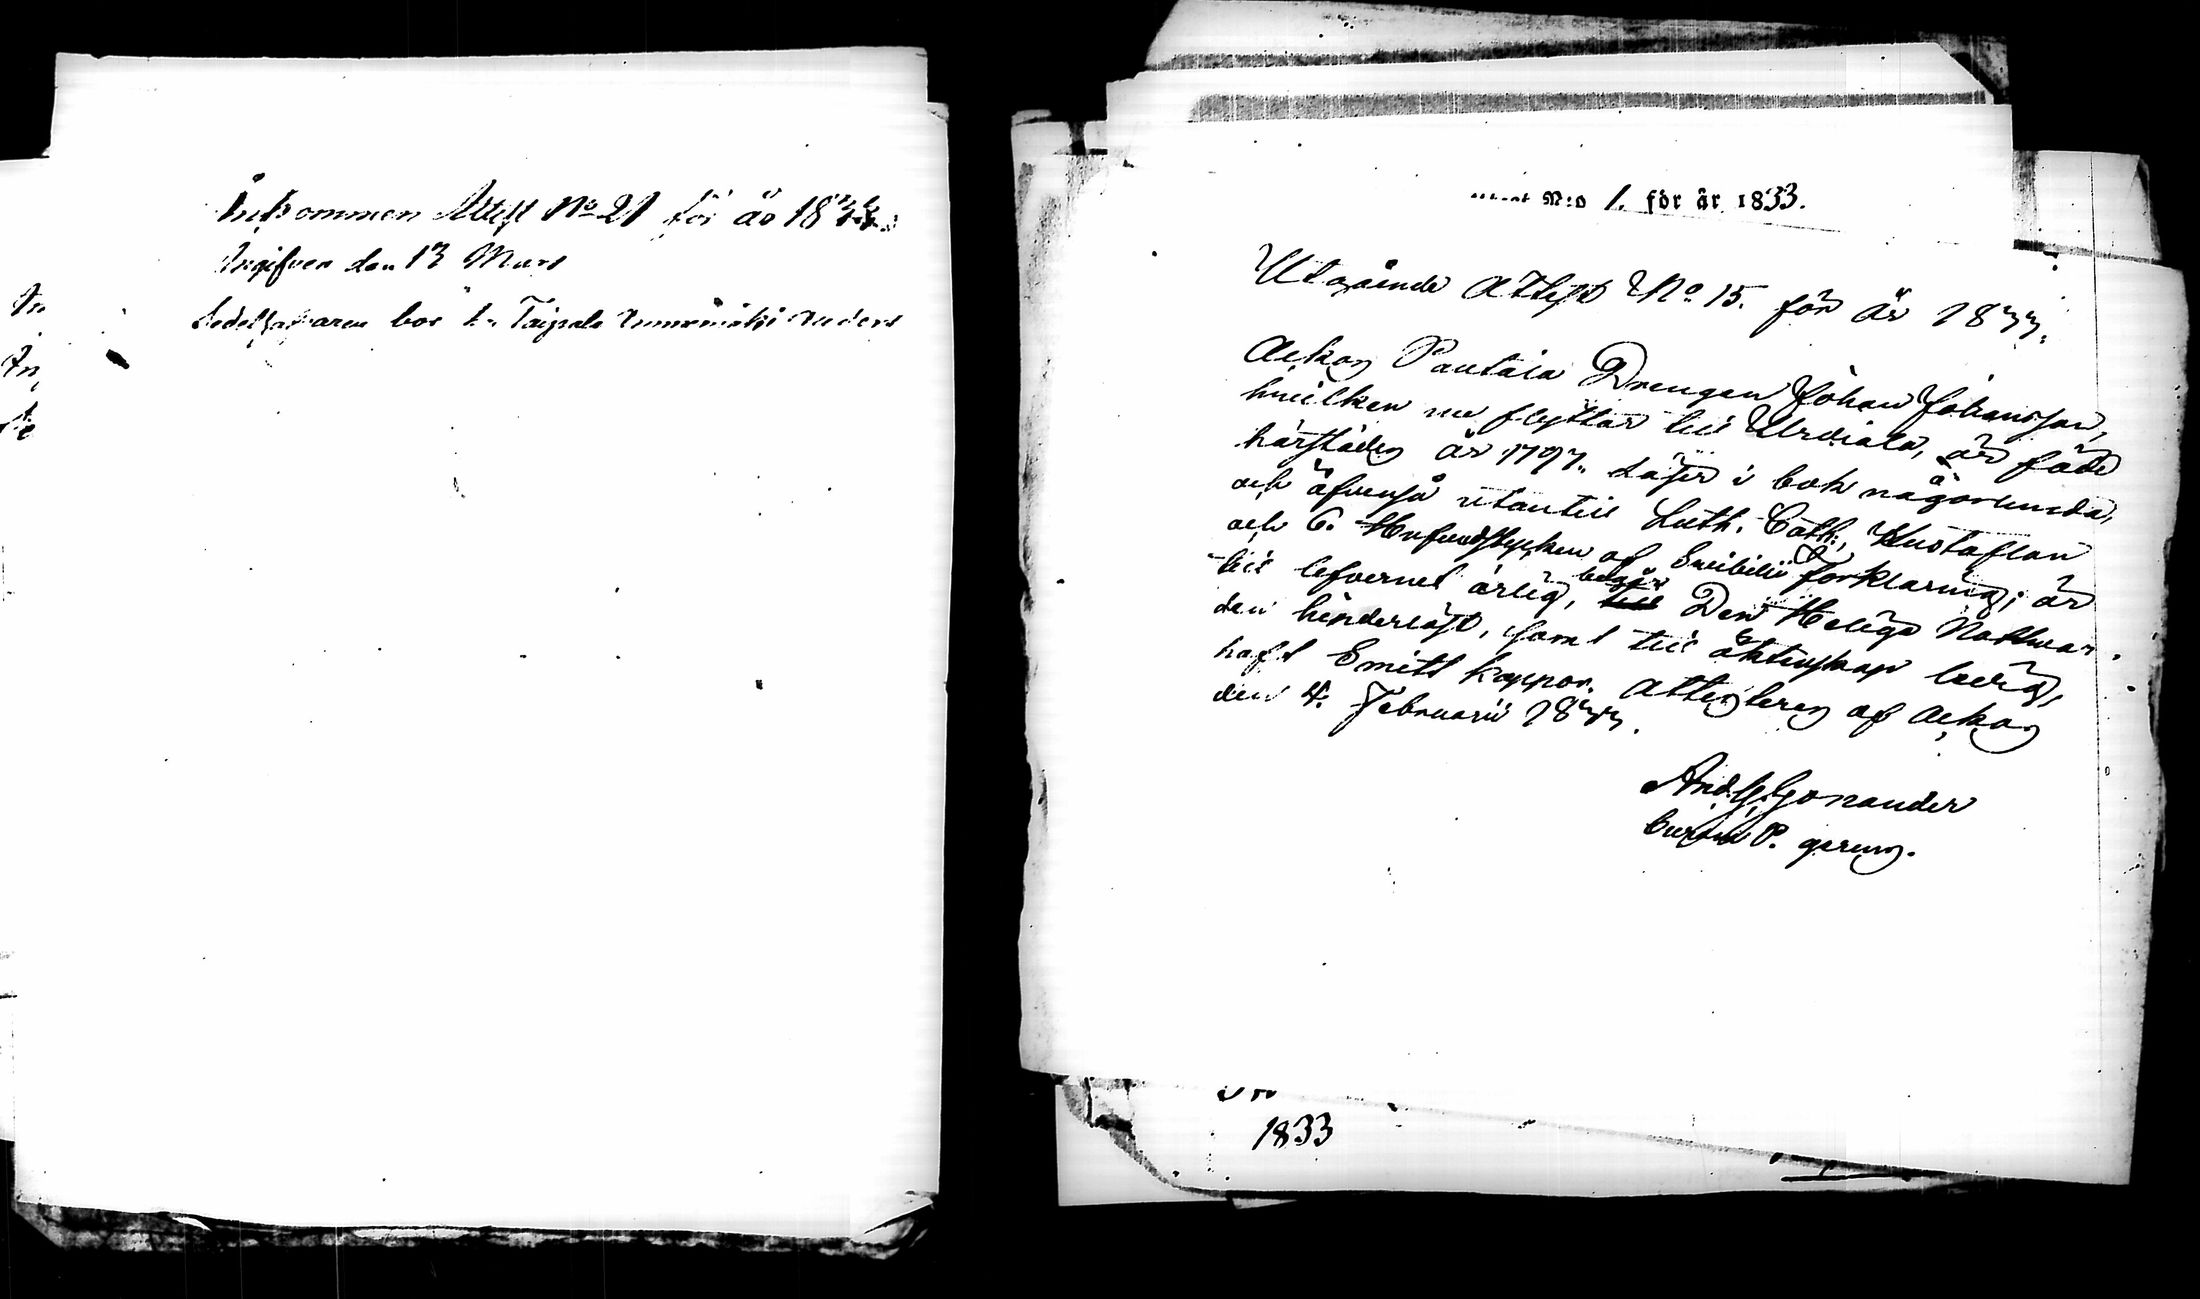 Inkommen Attest No 21 för år 1833.
Ingifven den 13 Mars
Sedelhafvaren bor i Taipale
In
In
Se
N:o 1. för år 1833.
Utgående Attest No 15. för år 1833.
Ackas Pautala Drengen Johan Johansson,
hvilken nu flyttar till Urdiala, är född
härstädes år 1797. Läser i bok någorlunda,
och äfvenså utantill Luth. Cath:, Hustaflan
och 6. Hufvudstycken af Svebilii förklaring; är
till lefvernet ärlig, begår till Den Heliga Nattvar
den hinderlöst, samt till äktenskap ledig,
haft Smitt koppor. Attesteras af Ackas
den 4. Februarii 1833.
And. G. Gonander
P.
1833